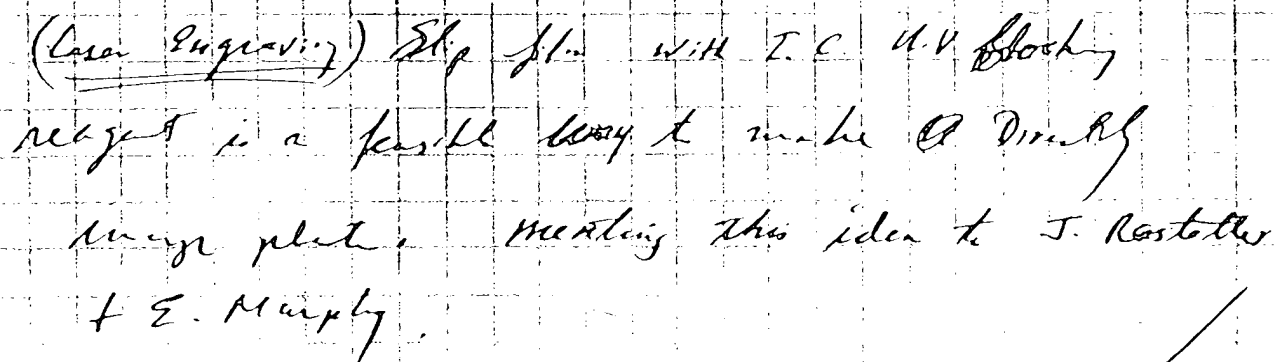 (Laser Engraving) Slip film with I.C. U.V blocking
reagent is a feasible way to make a Directly
image plate. menting this idea to J. Rastetter
+ E. Murphy.